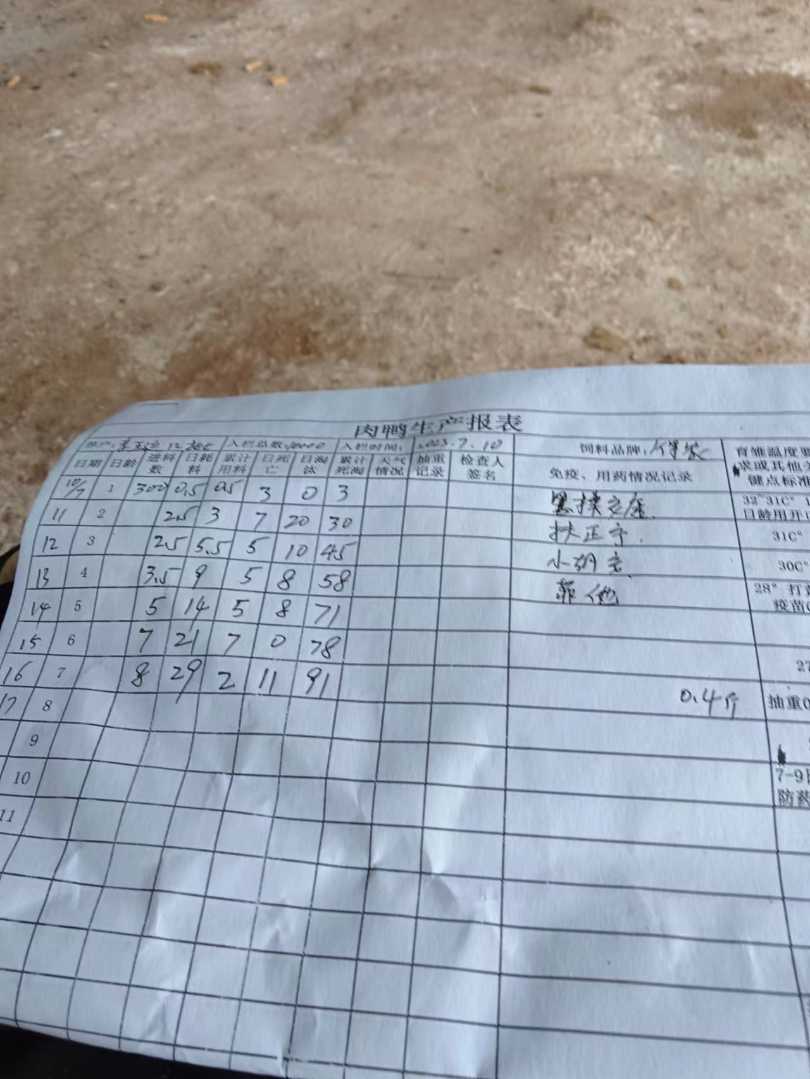 肉鸭生产报表
入栏总数: 入栏时间: 2023.7.10 饲料品牌: 育雏温度要求或其他关键点标准
日期 日龄 进料数 日耗料 累计用料 日死亡 日淘汰 累计死淘 天气情况 抽重记录 检查人签名 免疫、用药情况记录
10/7 1 300 0.5 0.5 3 0 3 32~31C°
日龄用开
11 2 2.5 3 7 20 30 扶正 31C°
12 3 2.5 5.5 5 10 45 30C°
13 4 3.5 9 5 8 58 28° 打
疫苗
14 5 5 14 5 8 71
15 6 7 21 7 0 78 27
16 7 8 29 2 11 91 0.4斤 抽重0
17 8
9
10 7-9
防药
11